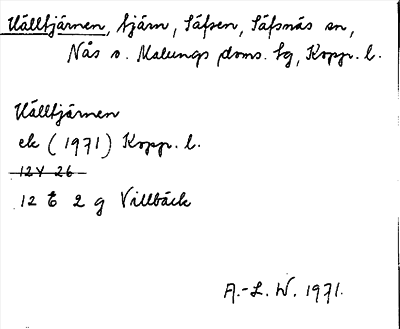 Källtjärnen, tjärn, Säfsen, Säfsnäs sn,
Nås o. Malungs doms. tg, Kopp. l.
Källtjärnen
ek (1971) Kopp. l.
12V 26
12 E 2 g Villbäck
A.-L. W. 1971.